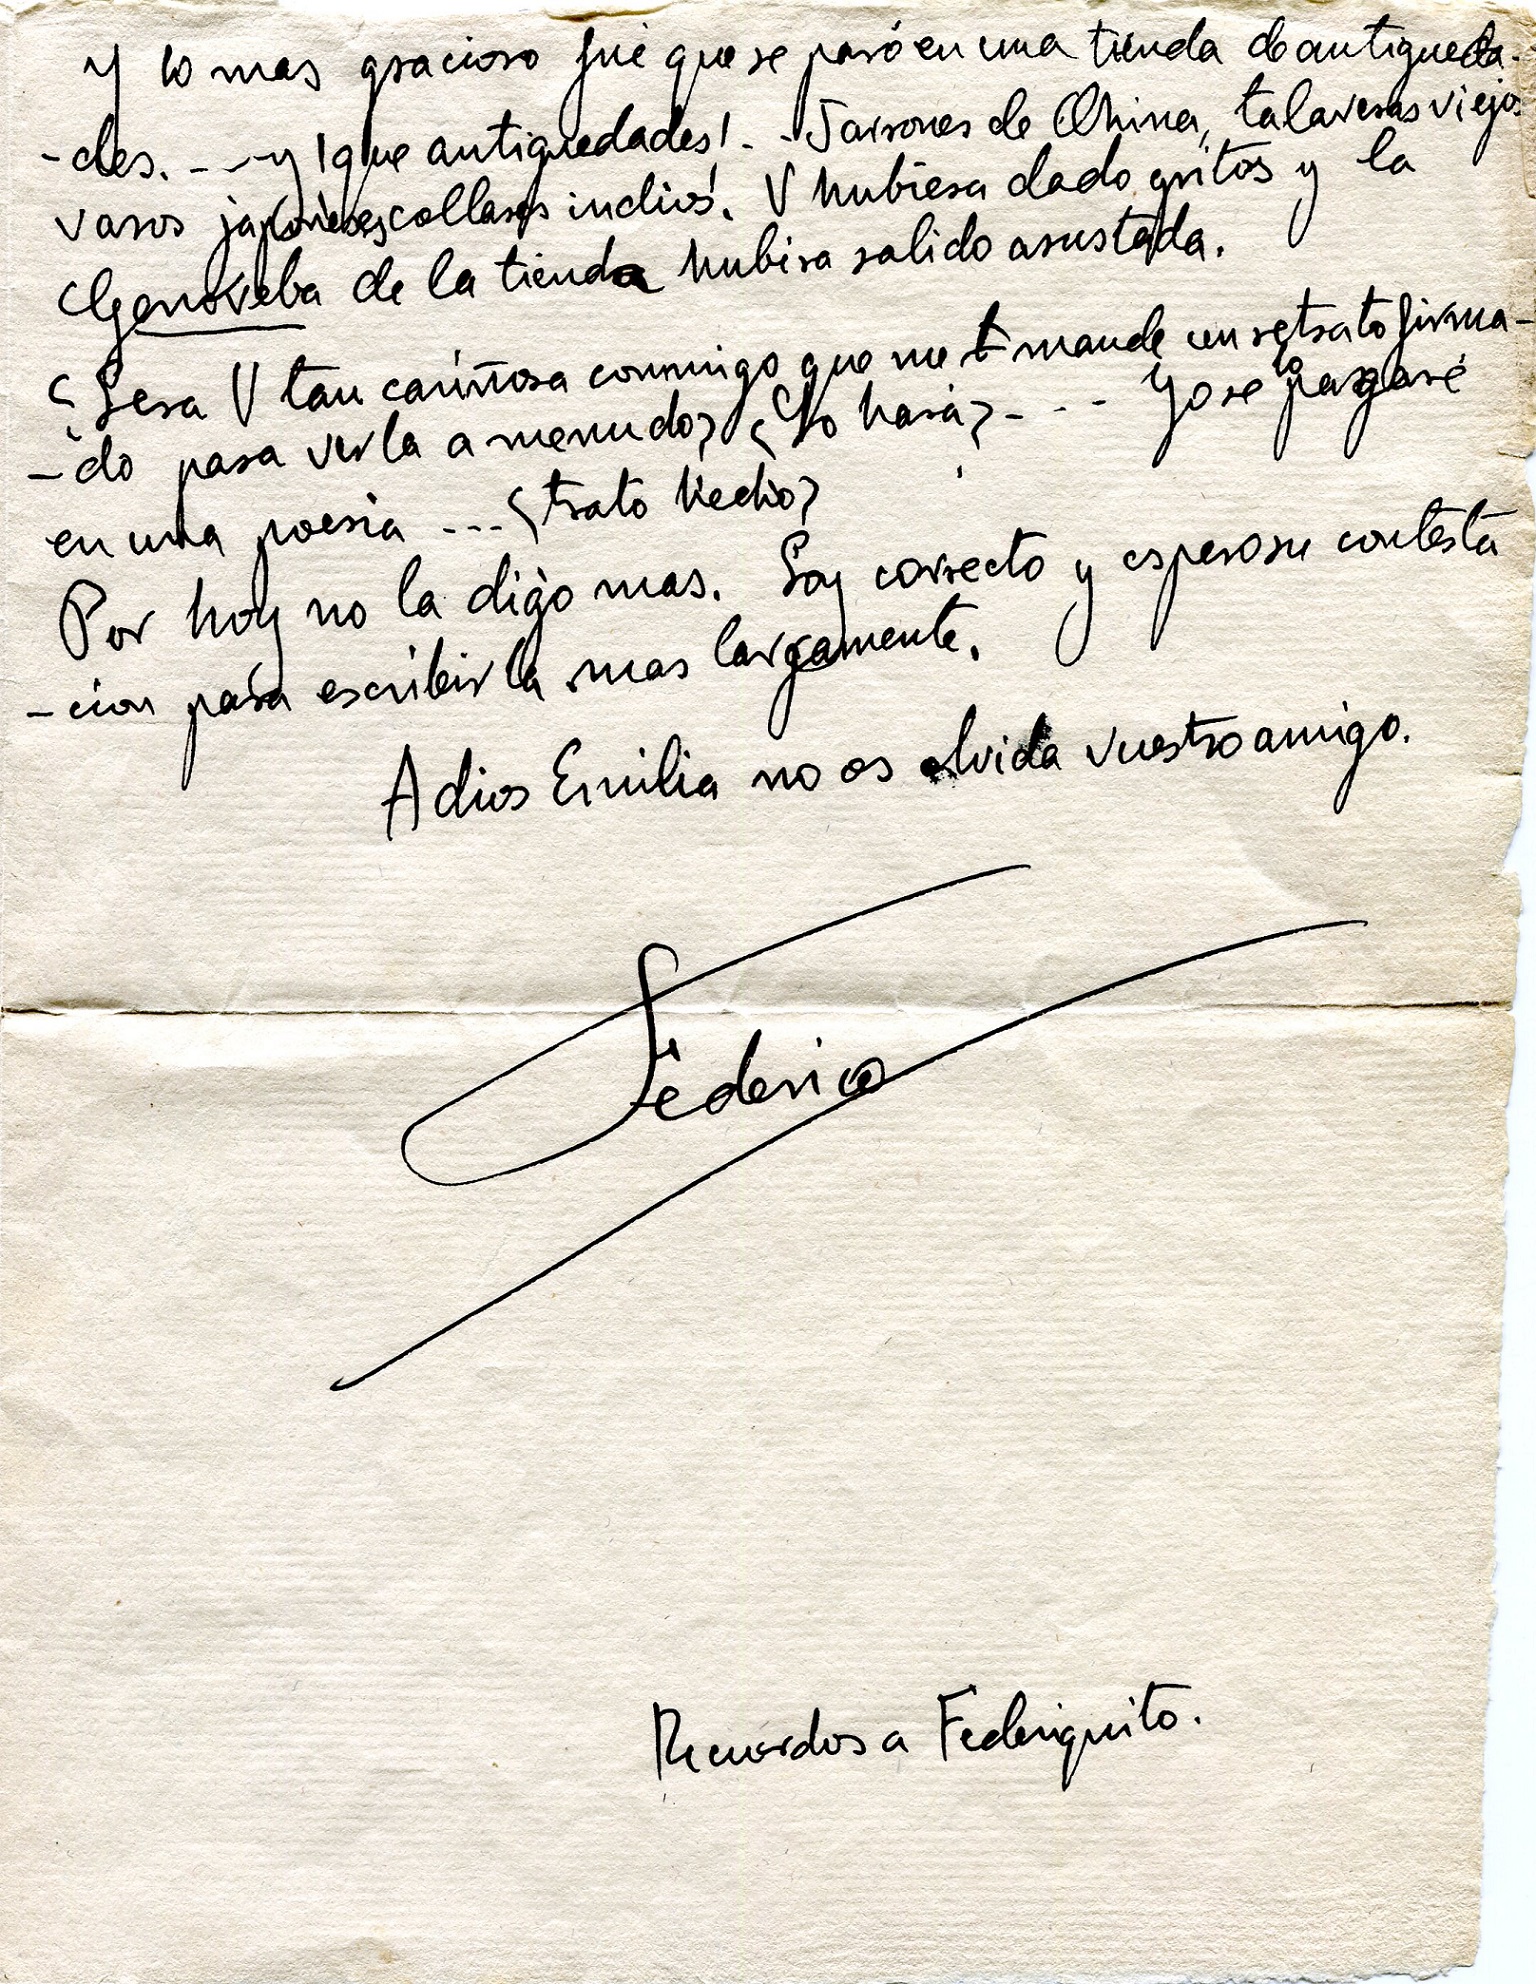 Y lo mas gracioso fué que se pasó en una tienda de antigueda-
-des. - - - y ¡que antiguedades! - - Jarrones de China, talaveras viejos
vasos japoneses, collares indios!. V hubiera dado gritos y la
Genoveba de la tienda hubira salido asustada.
¿Sera V tan cariñosa conmigo que me mande un retrato firma-
-do para verla a menudo? ¿Lo hará? - - - Yo se lo pagaré
en una poesia - - - ¿trato hecho?
Por hoy no la digo mas. Soy correcto y espero su contesta
-cion para escribirla mas largamente.
Adios Emilia no os olvida vuestro amigo.
Federico
Recuerdos a Federiquito.